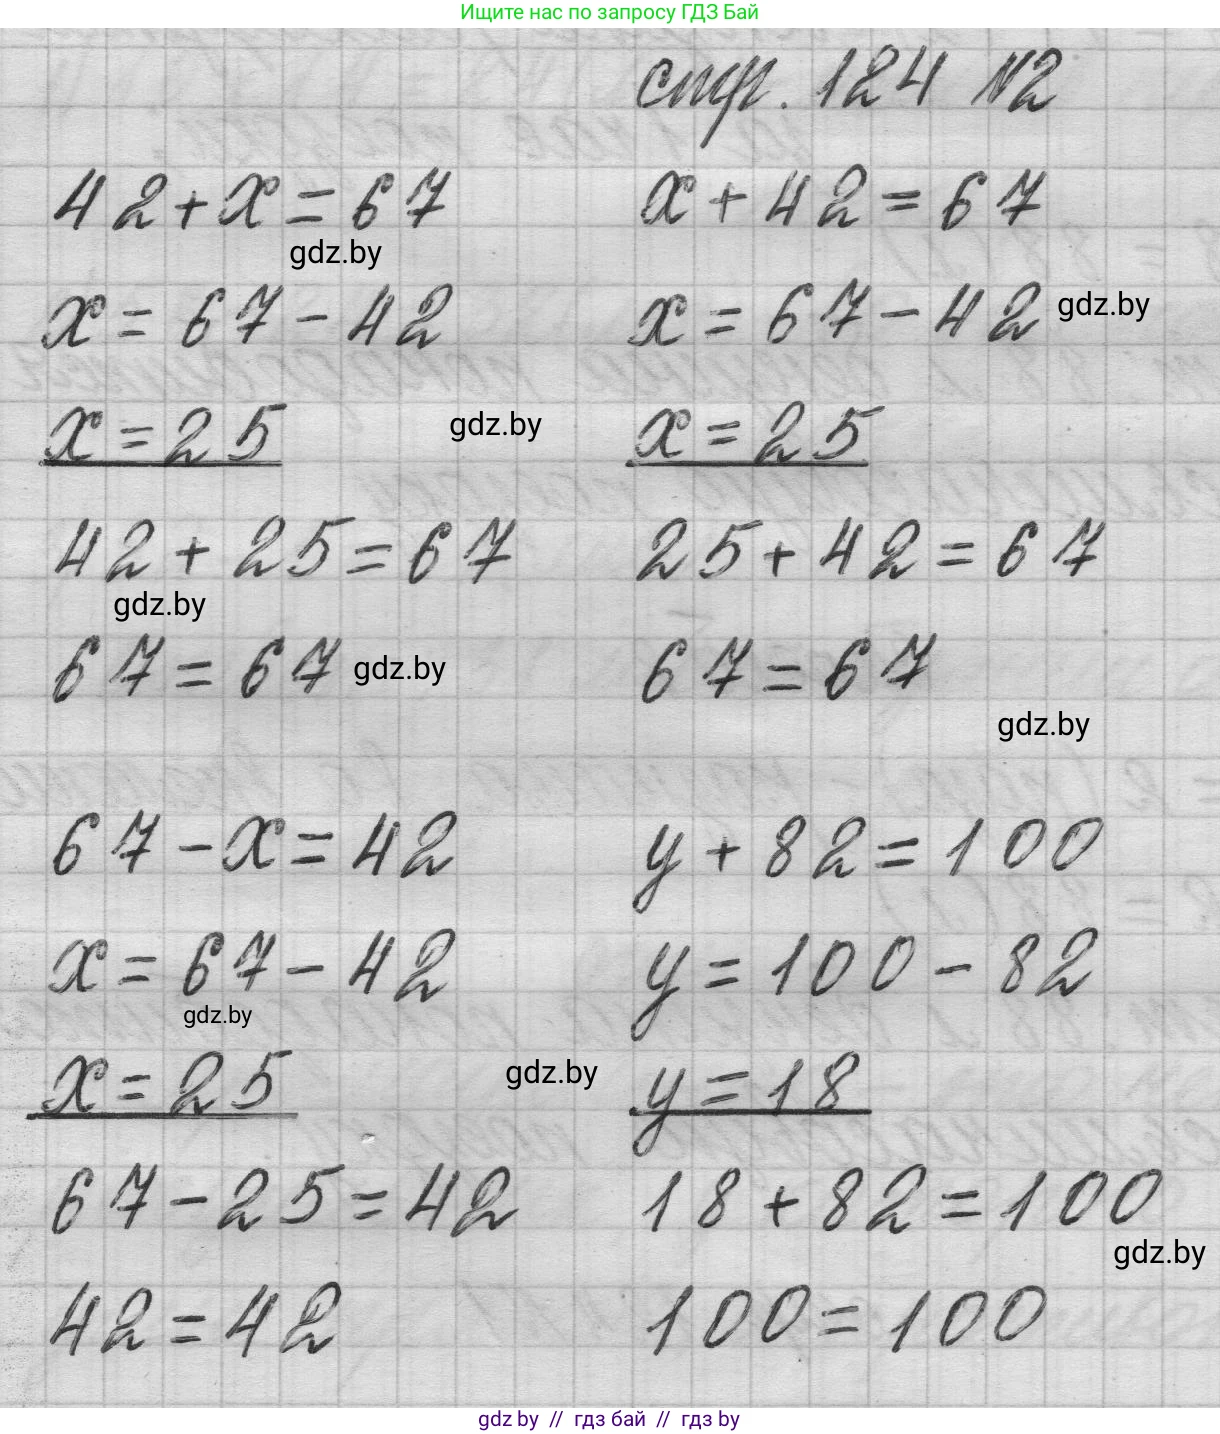 Ищите нас по запросу ГДЗ Бай
стр. 124 №2
42+x=67
x+42=67
gdz.by
x=67-42
x=67-42
gdz.by
x=25
gdz.by
x=25
42+25=67
25+42=67
gdz.by
67=67
gdz.by
67=67
gdz.by
67-x=42
y+82=100
x=67-42
y=100-82
gdz.by
x=25
gdz.by
y=18
67-25=42
18+82=100
gdz.by
42=42
100=100
gdz.by // гдз бай // гдз by